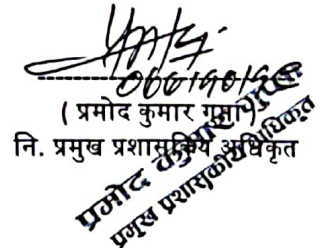 ( प्रमोद कुमार गुप्ता )
नि. प्रमुख प्रशासकिय अधिकृत
प्रमोद कुमार गुप्ता
प्रमुख प्रशासकीय अधिकृत